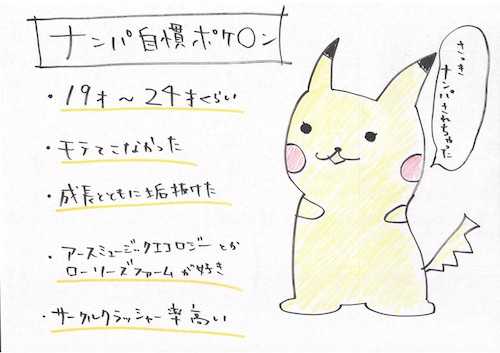 ナンパ自慣ポケ○ン
・19才～24才くらい
・モテてこなかった
・成長とともに垢抜けた
・アースミュージックエコロジーとか
ローリーズファームが好き
・サークルクラッシャー率高い
さっき
ナンパされちゃった